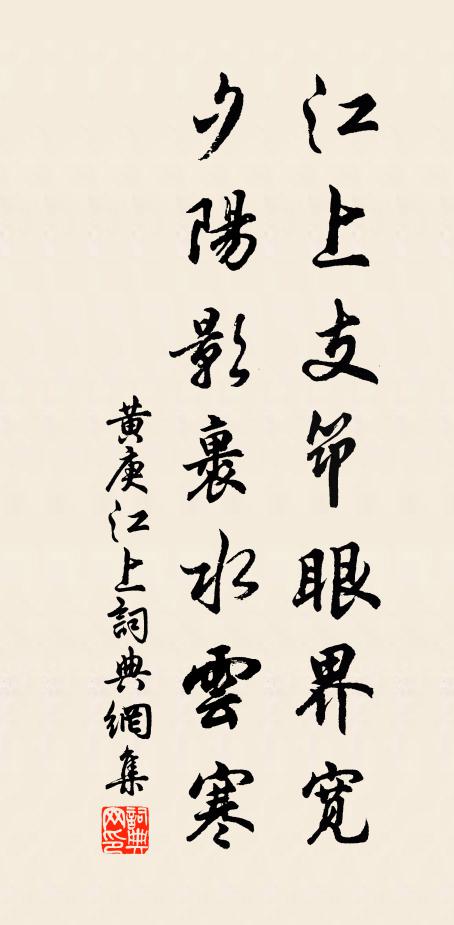 江上支筇眼界寬
夕陽影裏水雲寒
黃庚江上詞典網集
詞典网印